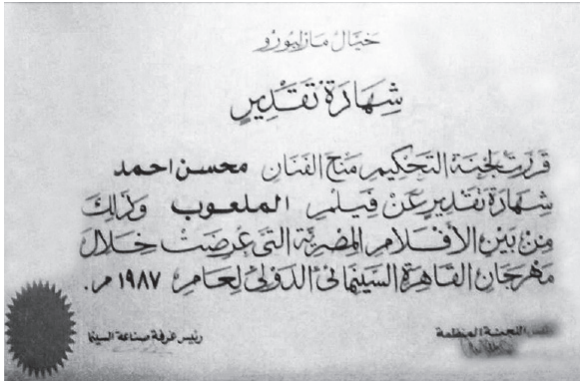 خيال مارلبورو
شهادة تقدير
قررت لجنة التحكيم منح الفنان محسن احمد
شهادة تقدير عن فيلم الملعوب وذلك
من بين الأفلام المصرية التى عرضت خلال
مهرجان القاهرة السينمائى الدولى لعام ١٩٨٧ م.
اللجنة المنظمة
رئيس غرفة صناعة السينما